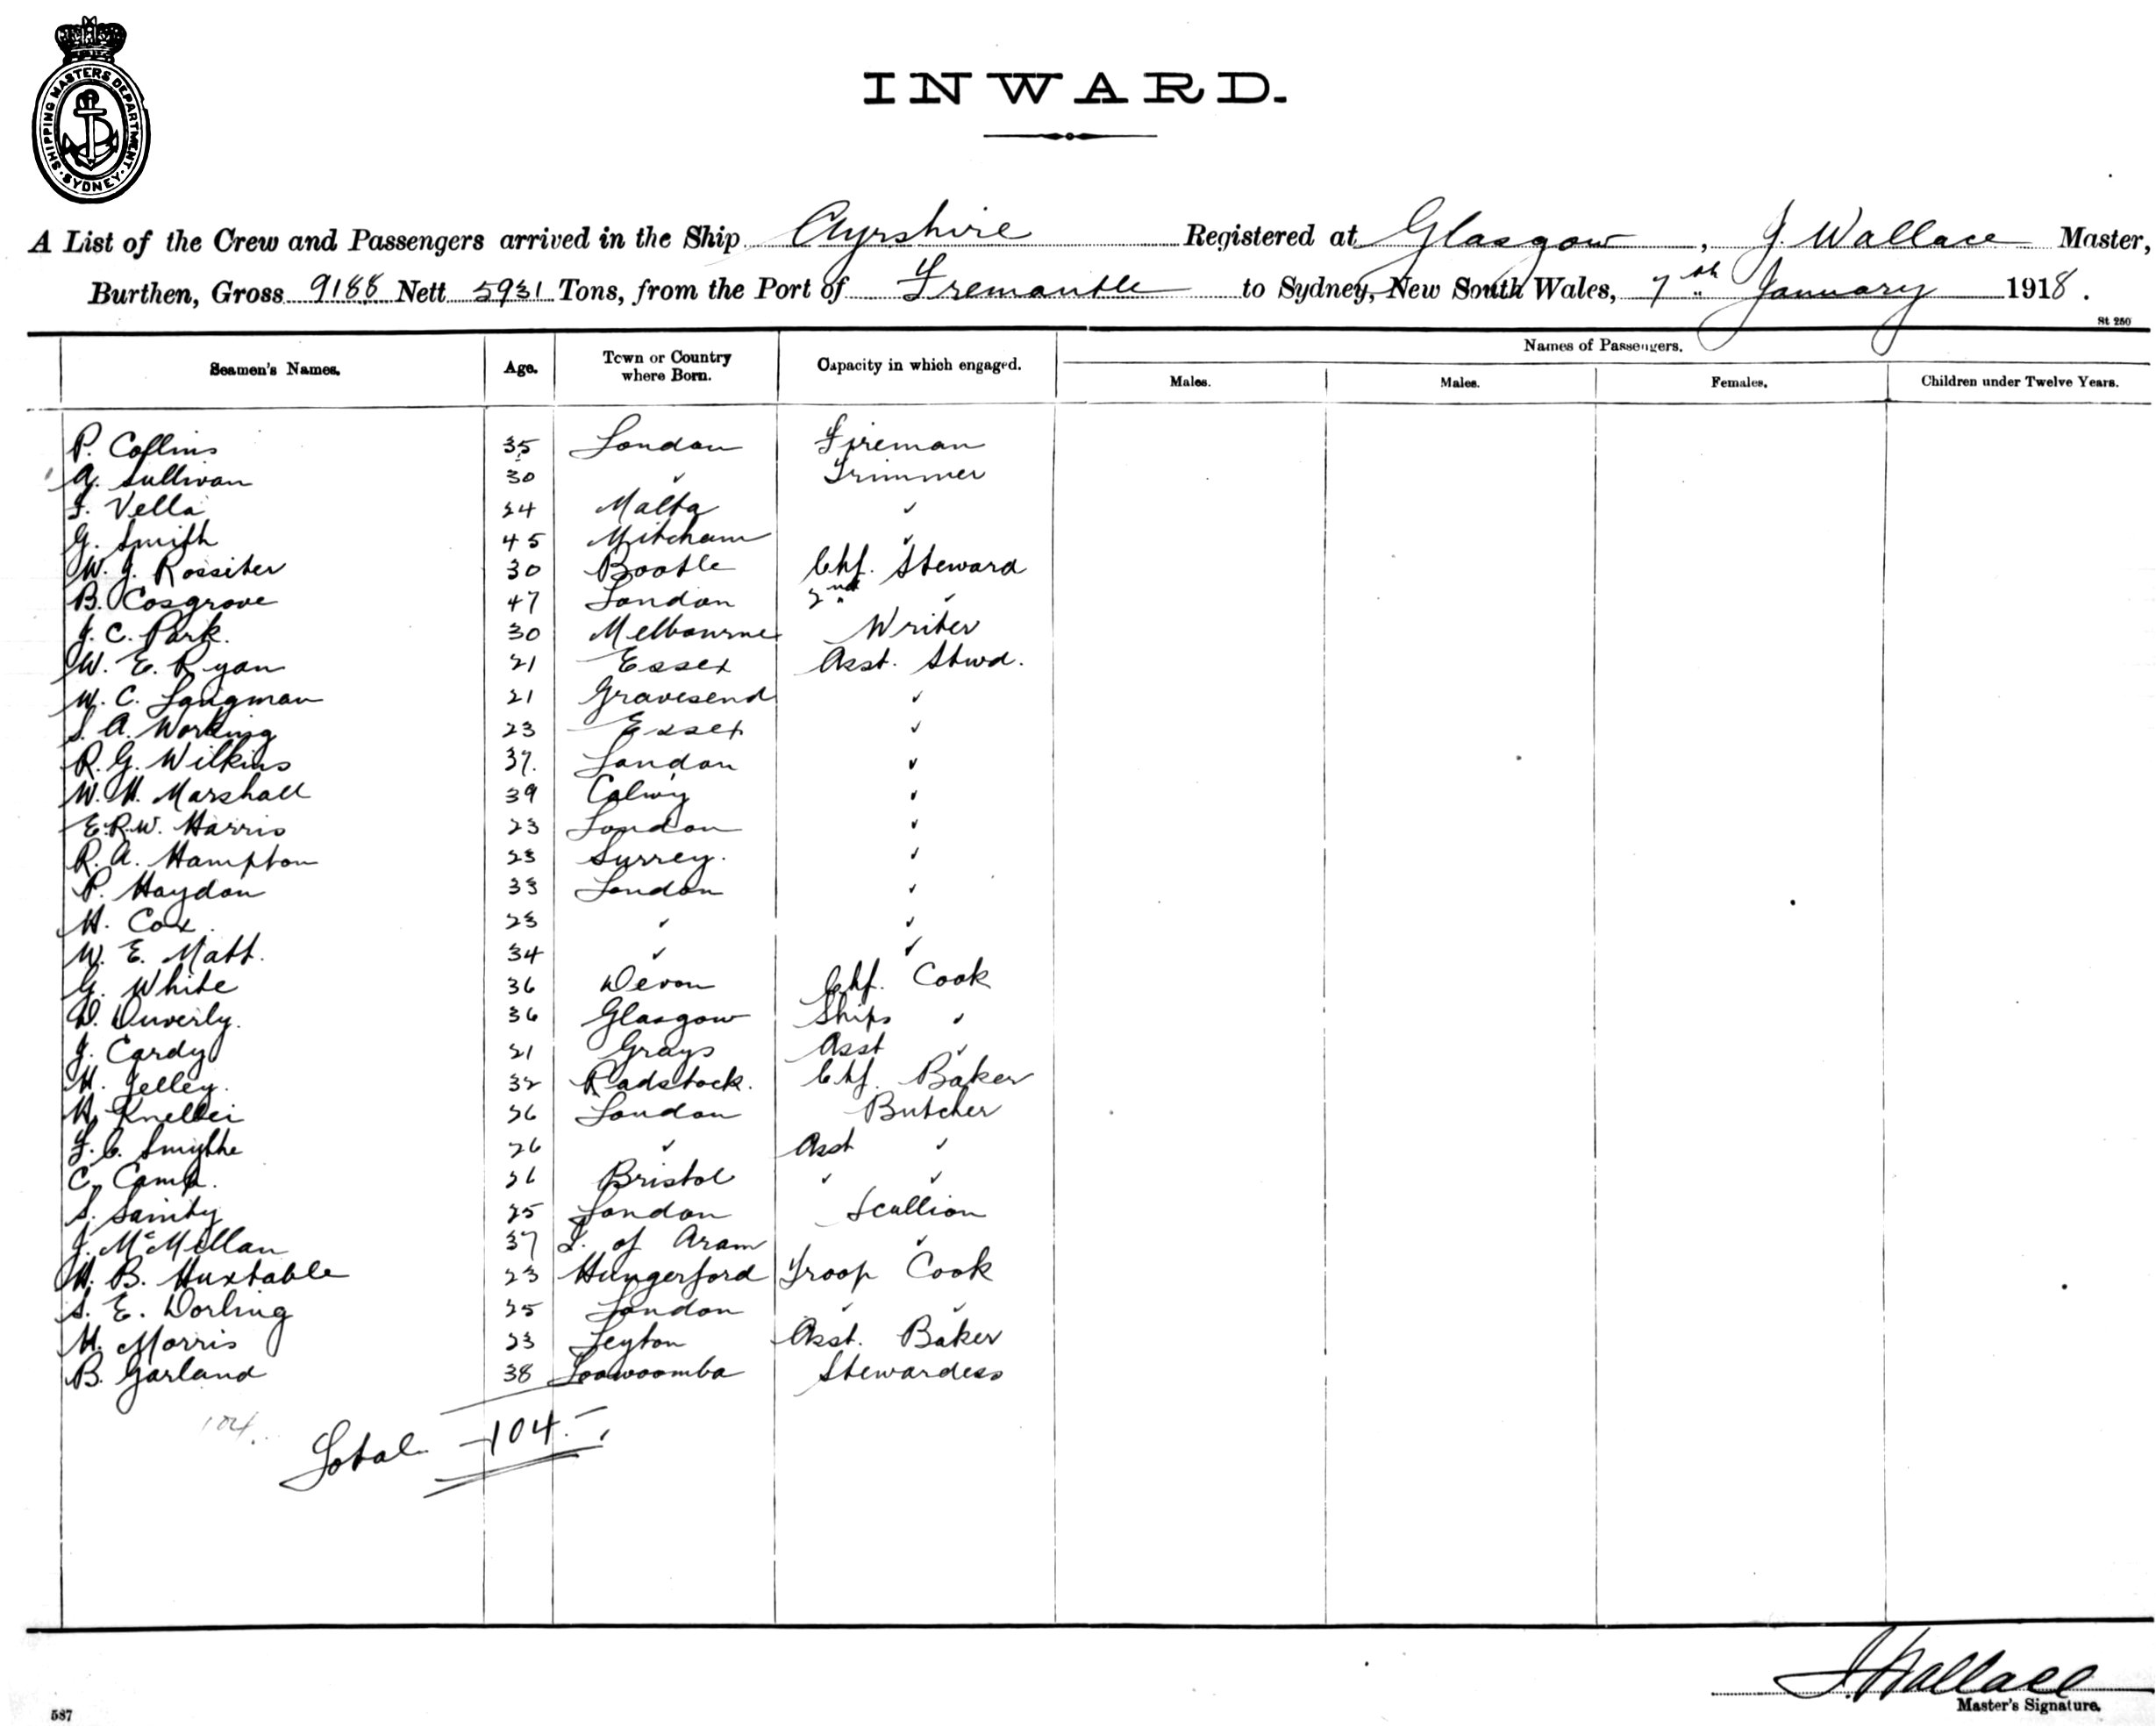 SHIPPING MASTERS DEPARTMENT
SYDNEY
INWARD.
A List of the Crew and Passengers arrived in the Ship Ayrshire Registered at Glasgow, J. Wallace Master,
Burthen, Gross 9188 Nett 5931 Tons, from the Port of Fremantle to Sydney, New South Wales, 7th January 1918.
St 250
Seamen's Names. Age. Town or Country where Born. Capacity in which engaged. Names of Passengers.
Males. Males. Females. Children under Twelve Years.
P. Collins 35 London Fireman
A. Sullivan 30 ✓ Trimmer
J. Vella 24 Malta ✓
G. Smith 45 Mitcham ✓
W. J. Rossiter 30 Bootle Chf. Steward
B. Cosgrove 47 London 2nd ✓
J. C. Park. 30 Melbourne Writer
W. E. Ryan 21 Essex Asst. Stwd.
W. C. Langman 21 Gravesend ✓
S. A. Working 23 Essex ✓
R. G. Wilkins 37. London ✓
W. H. Marshall 39 ✓
E.R.W. Harris 23 London ✓
R. A. Hampton 23 Surrey. ✓
P. Haydon 33 London ✓
H. Cox. 23 ✓ ✓
W. E. Matt. 34 ✓ ✓
G. White 36 Devon Chf. Cook
D. Duverly. 36 Glasgow Ships ✓
J. Cardy 21 Grays Asst ✓
H. Jelley. 32 Radstock. Chf. Baker
H. 26 London Butcher
F. C. Smythe 26 ✓ Asst ✓
C. Camb. 26 Bristol ✓ ✓
S. Sainty 25 London Scullion
J. McMillan 37 I. of Aram ✓
H. B. Huxtable 23 Hungerford Troop Cook
S. E. Dorling 25 London ✓ ✓
H. Morris 23 Leyton Asst. Baker
B. Garland 38 Toowoomba Stewardess
104.
Total - 104. -
J. Wallace
Master's Signature.
587